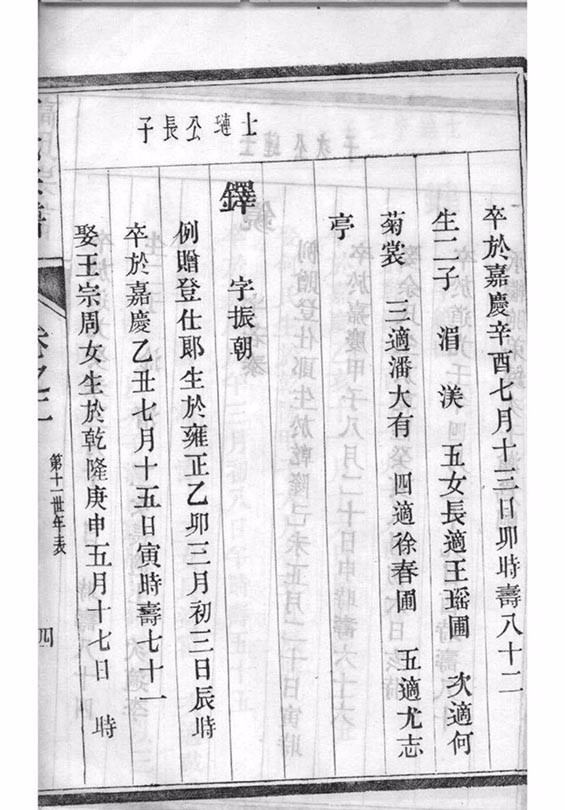 卒於嘉慶辛酉七月十三日卯時壽八十二
生二子 湄 渼 五女長適王瑤圃 次適何
菊裳 三適潘大有 四適徐春圃 五適尤志
亭
士璉公長子
鐸 字振朝
例贈登仕郎生於雍正乙卯三月初三日辰時
卒於嘉慶乙丑七月十五日寅時壽七十一
娶王宗周女生於乾隆庚申五月十七日 時
第十一世年表
四